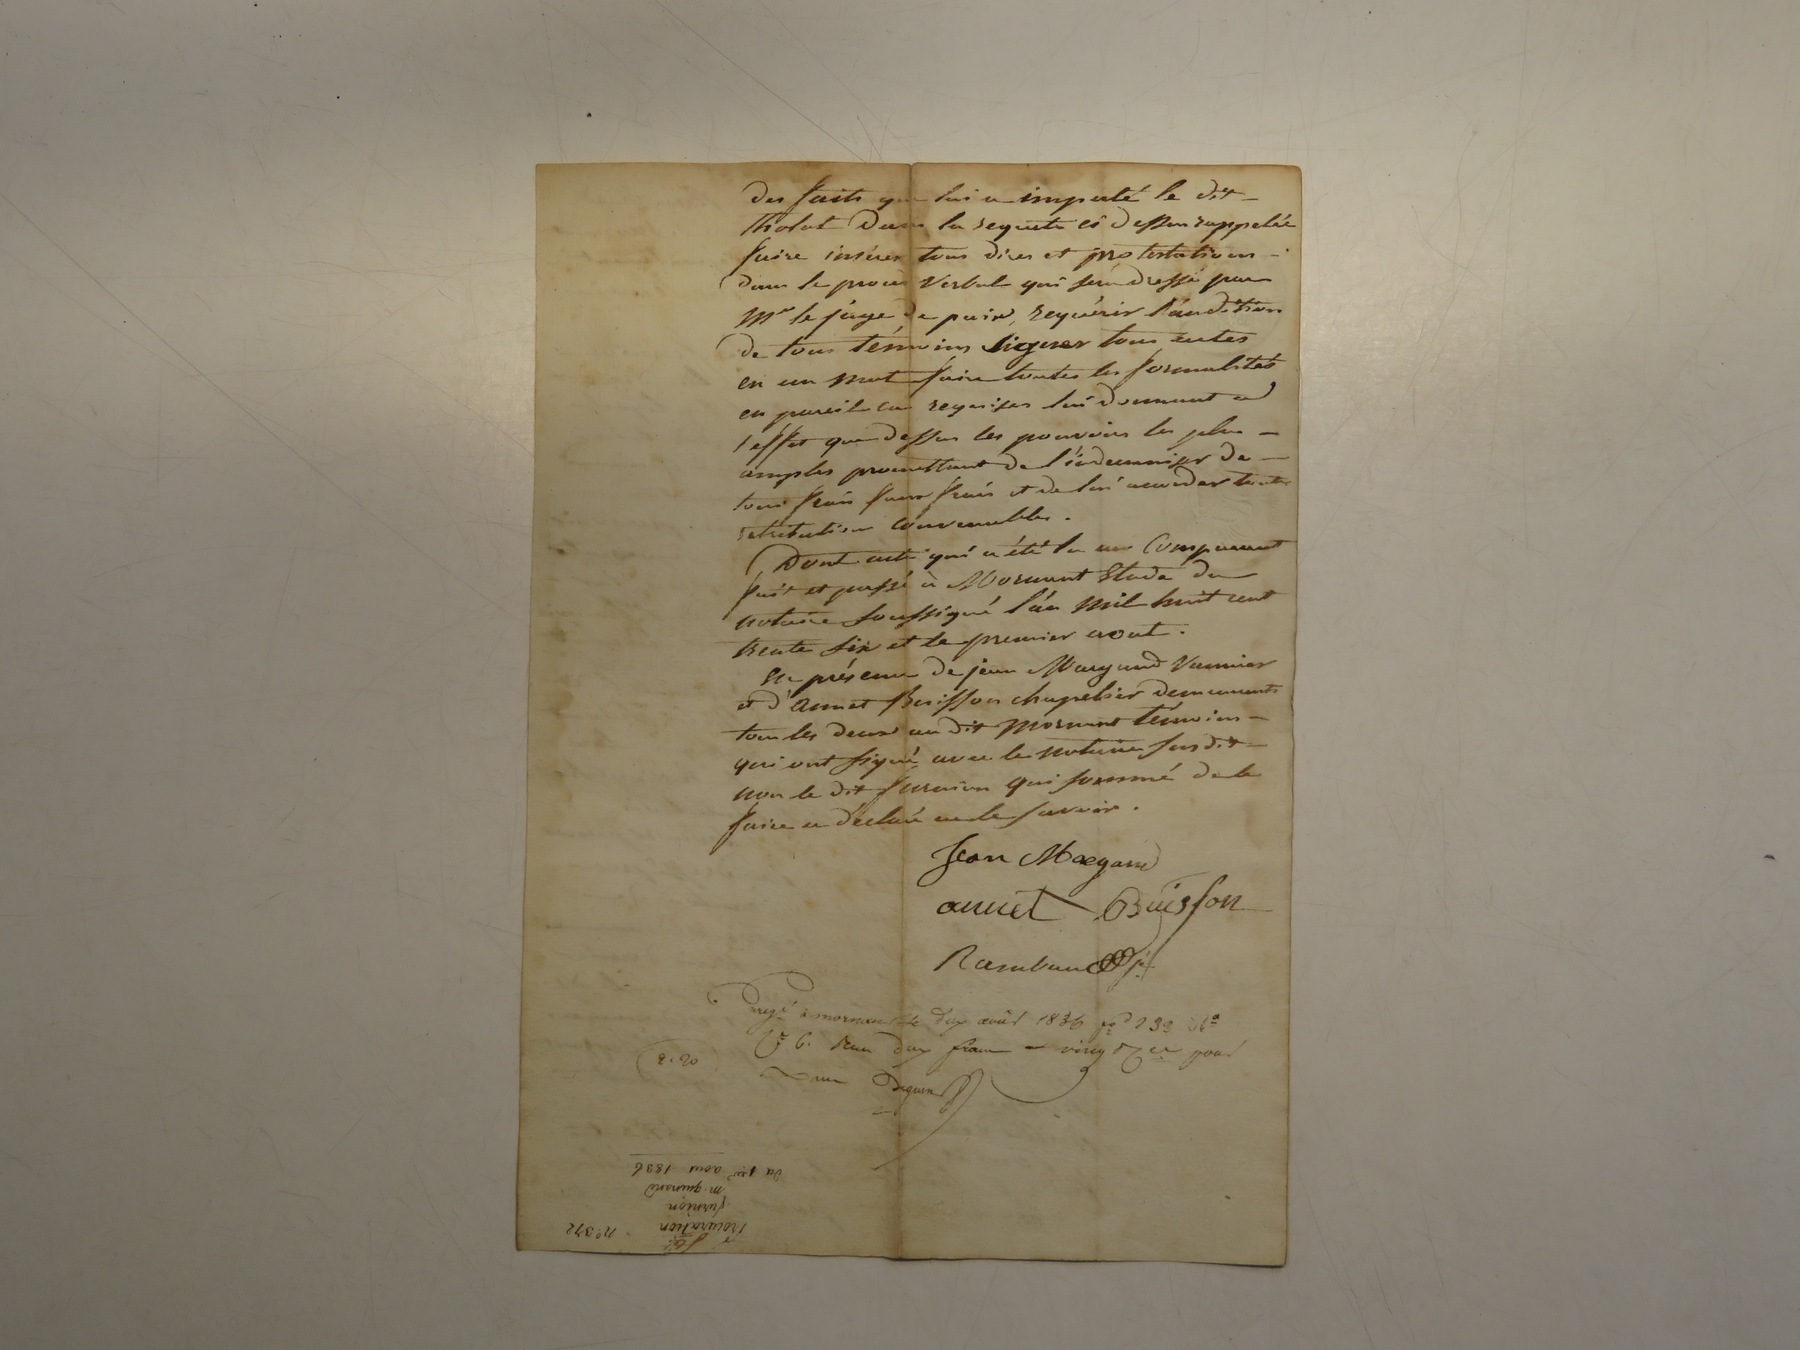 des faits que lui a imputé le dit
tholat Dans la requete ci dessus rappelée
faire insérer tous dires et protestations
dans le procès verbal qui sera dressé par
Mr le juge de paix, requérir l'audition
de tous témoins signer tous actes
en un mot faire toutes les formalités
en pareil cas requises lui donnant a
l'effet que dessus les pouvoirs les plus
amples promettant de l'indemniser de
tous frais faux frais et de lui accorder toute
retribution convenables.
Dont acte qui a été lu au Comparant
fait et passé à Mornant Etude du
notaire soussigné l'an mil huit cent
trente six et le premier aout.
En présence de jean Margand Vannier
et d'annet Buisson chapelier demeurants
tous les deux au dit Mornant témoins
qui ont signé avec le notaire susdit
non le dit furnion qui sommé de le
faire a déclaré ne le savoir.
Jean Margand
annet Buisson
Rambaud
Enregé à mornant le deux août 1836 fo 23
6. Reçu deux francs vingt ce pour
2.20
Du 1er aout 1836
m. guinand
furnion
Procuration
No 372